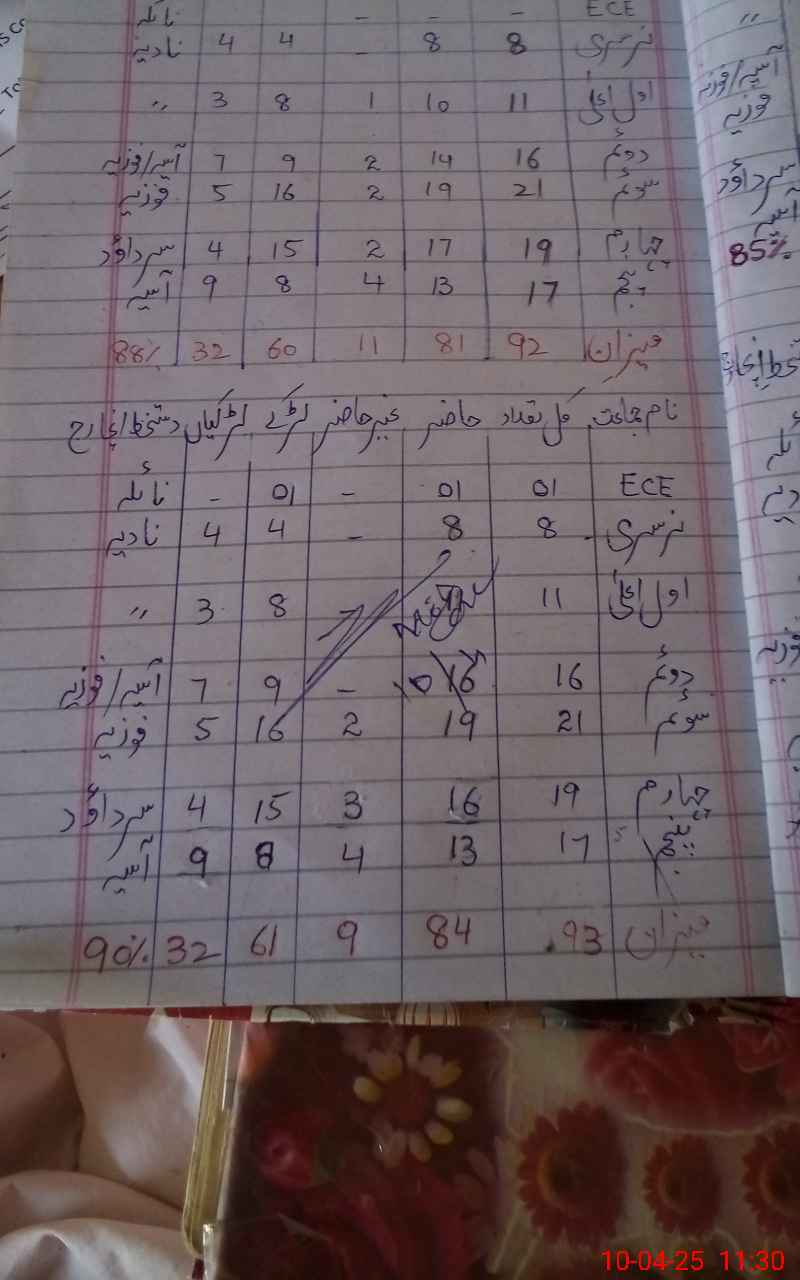 ECE - - -
نرسری 8 8 - 4 4 نادیہ
اول اعلیٰ 11 10 1 8 3 〃
دوئم 16 14 2 9 7 آسیہ/فوزیہ
سوئم 21 19 2 16 5 فوزیہ
چہارم 19 17 2 15 4 سر داؤد
پنجم 17 13 4 8 9 آسیہ
میزان 92 81 11 60 32 88%
نام جماعت کل تعداد حاضر غیر حاضر لڑکے لڑکیاں دستخط انچارج
ECE 01 01 - 01 -
نرسری 8 8 - 4 4 نادیہ
اول اعلیٰ 11 - 8 3 〃
دوئم 16 16 - 9 7 آسیہ/فوزیہ
سوئم 21 19 2 16 5 فوزیہ
چہارم 19 16 3 15 4 سر داؤد
پنجم 17 13 4 8 9 آسیہ
میزان 93 84 9 61 32 90%
〃
آسیہ/فوزیہ
فوزیہ
سر داؤد
آسیہ
85%
10-04-25 11:30